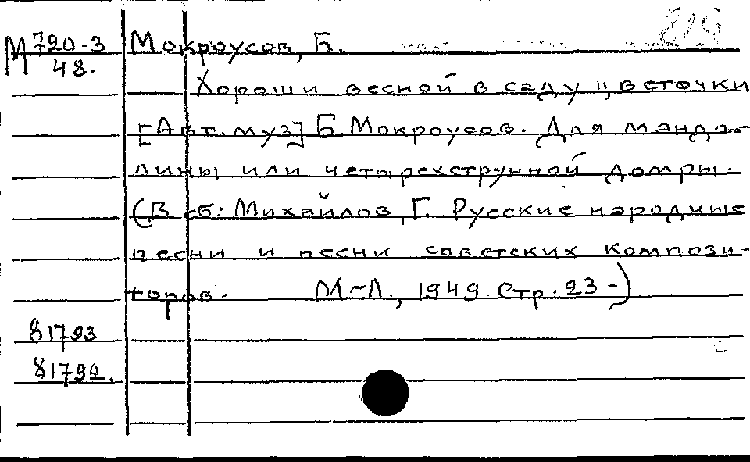 М 720-3 Мокроусов, Б.
48. Хороши весной в саду цветочки
[Авт. муз] Б Мокроусов. Для мандо-
лины или четырехструнной домры.
(В сб: Михайлов, Г. Русские народные
песни и песни советских компози-
торов. М-Л., 1949. Стр. 23-)
81793
81792.